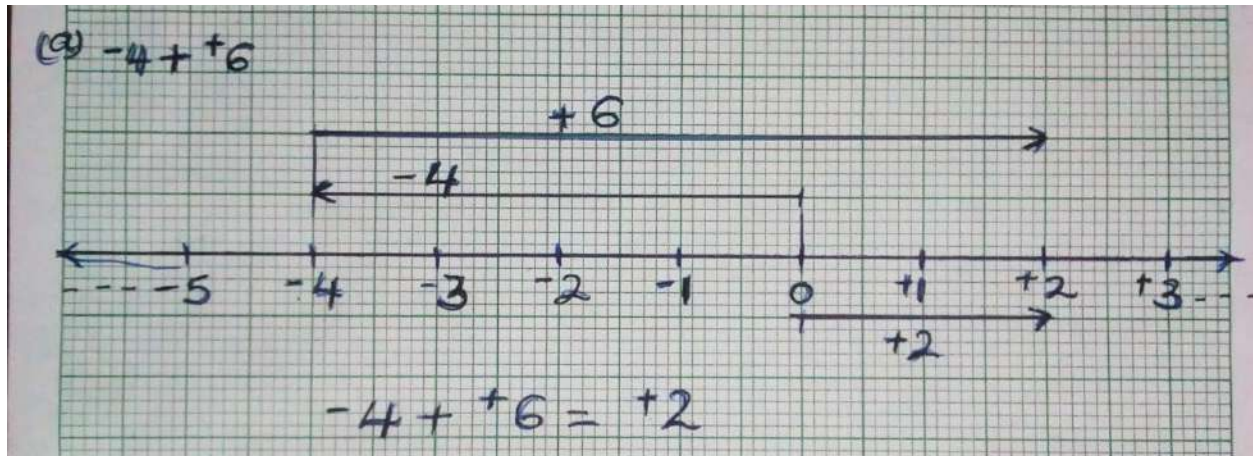 (a) ⁻4 + ⁺6
+6
-4
---- -5 -4 -3 -2 -1 0 +1 +2 +3 ---
+2
⁻4 + ⁺6 = ⁺2